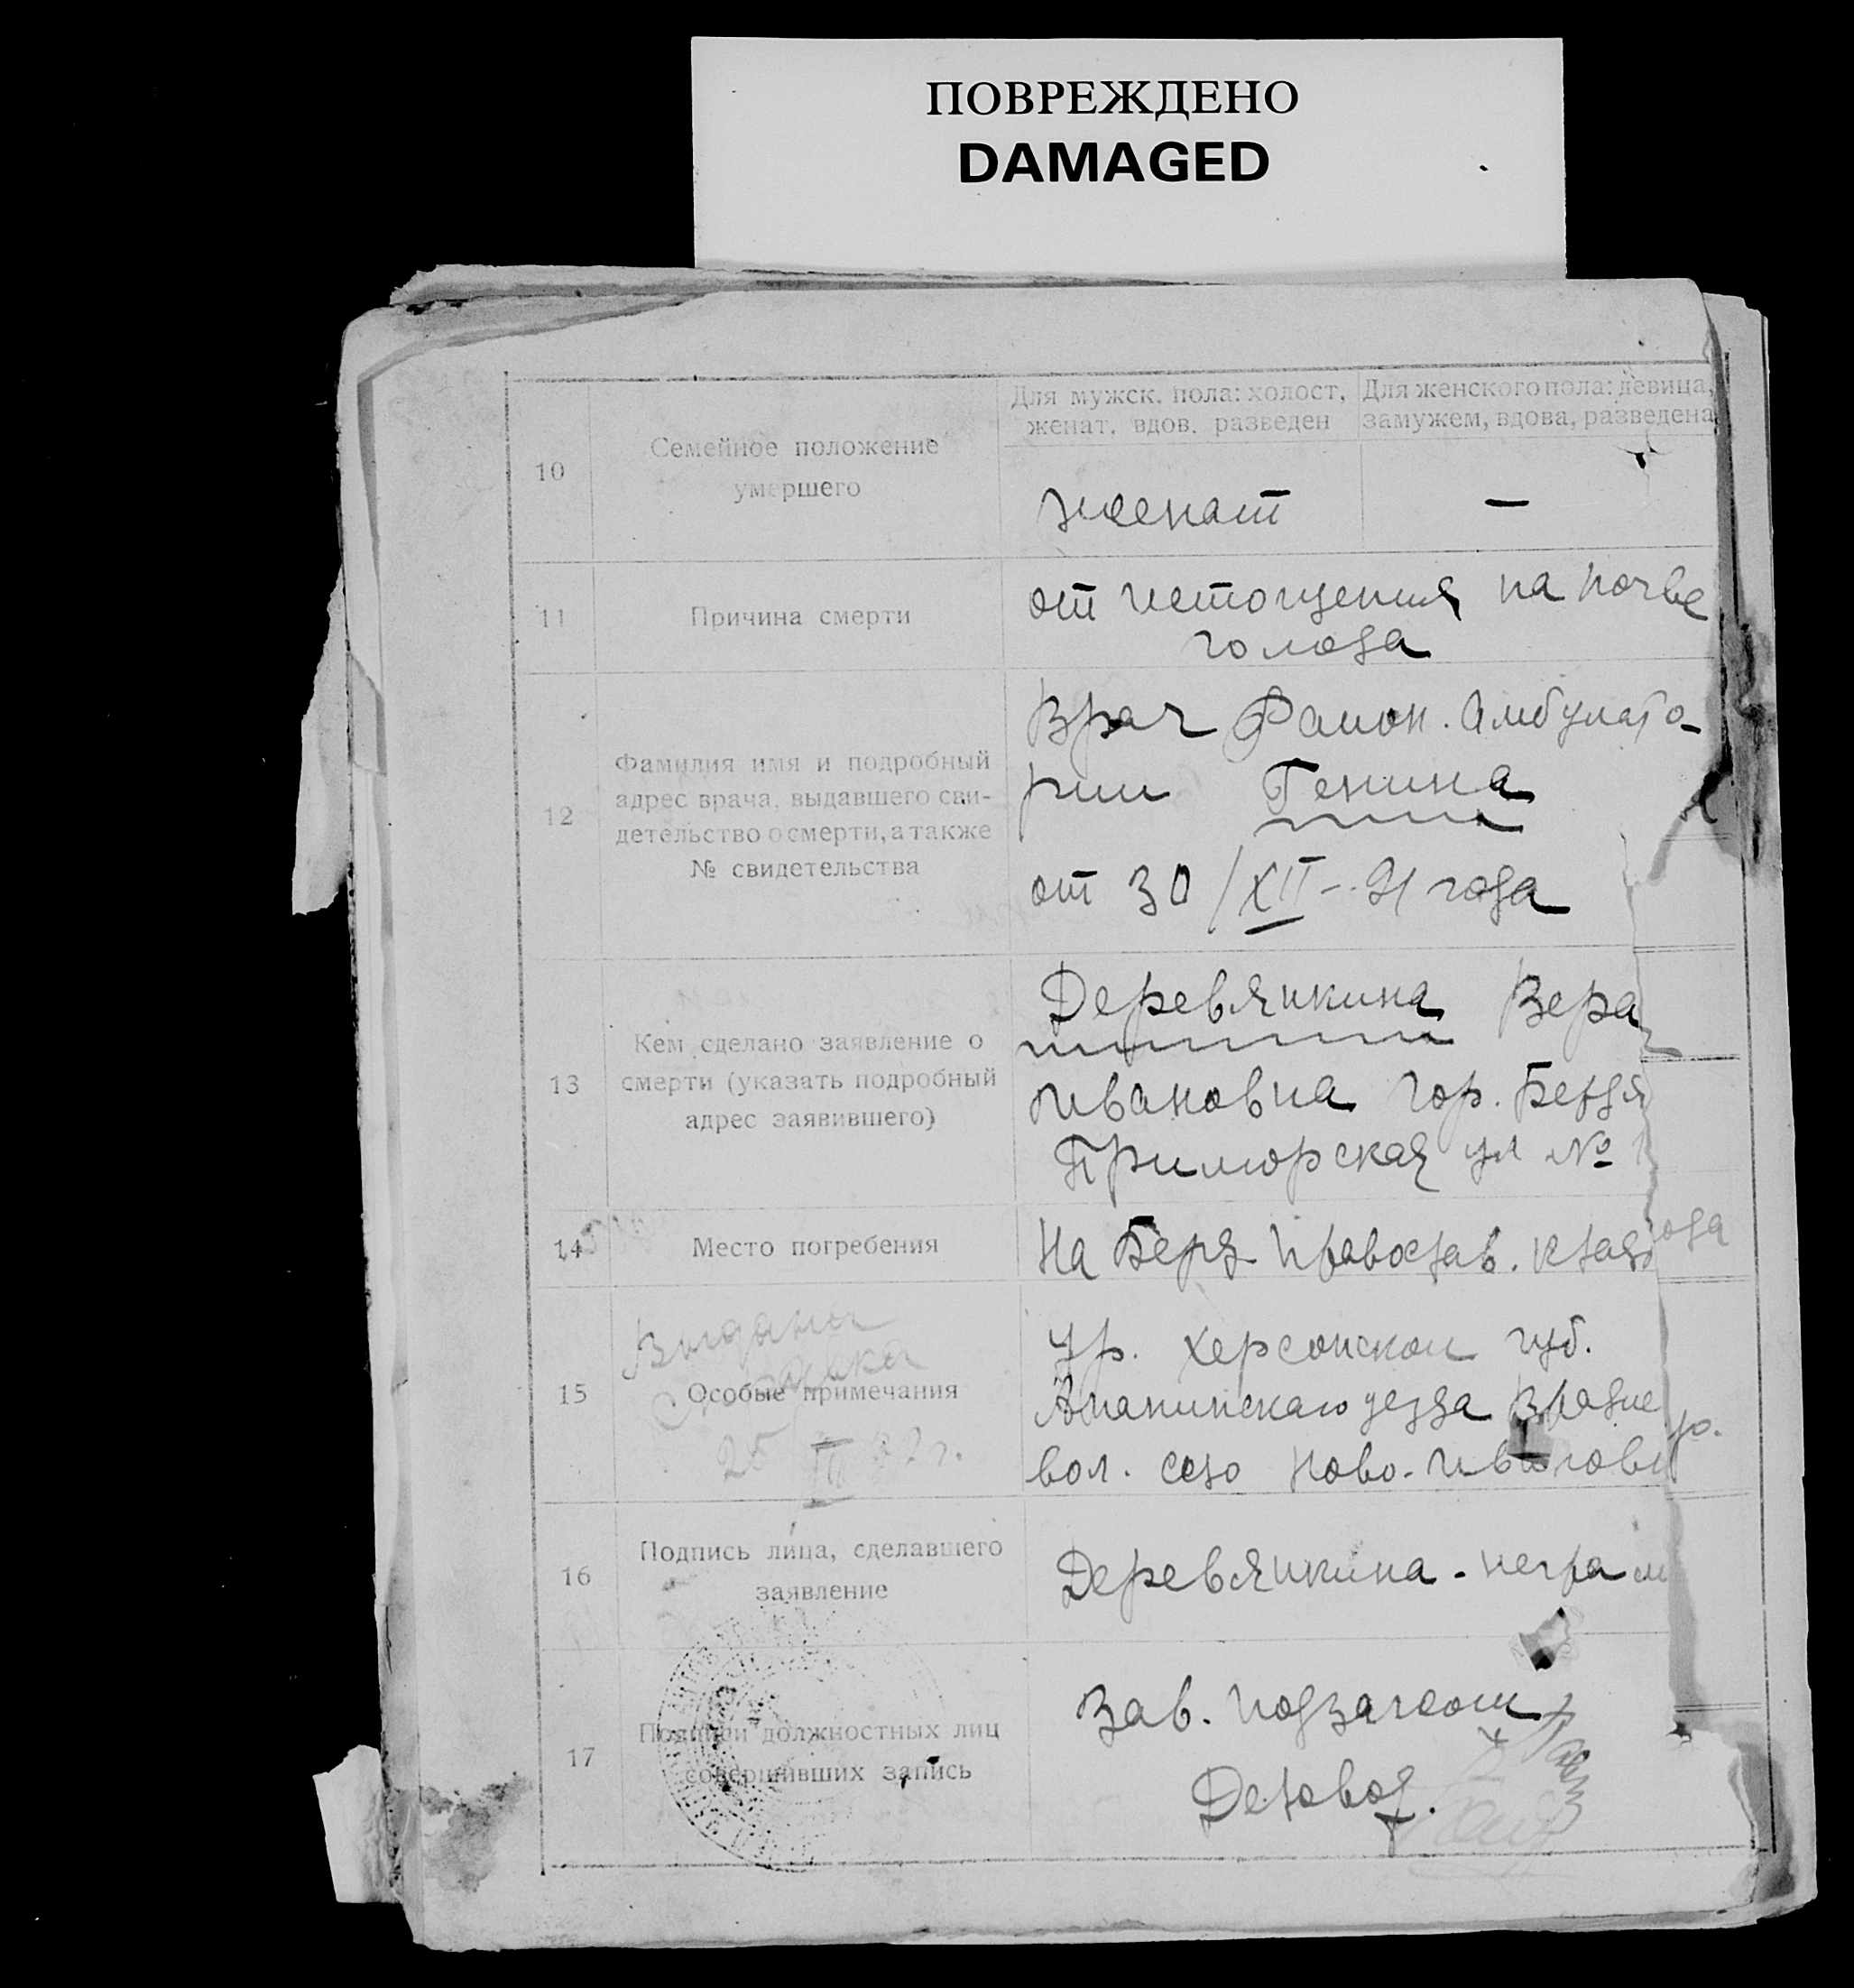 ПОВРЕЖДЕНО
DAMAGED
Для мужск. пола: холост,
женат, вдов, разведен
Для женского пола: девица,
замужем, вдова, разведена
10
Семейное положение
умершего
женат
—
11
Причина смерти
от истощения на почве
голода
12
Фамилия имя и подробный
адрес врача, выдавшего сви-
детельство о смерти, а также
№ свидетельства
Врач Район. Амбулато-
рии Генина
от 30/XII-21 года
13
Кем сделано заявление о
смерти (указать подробный
адрес заявившего)
Деревянкина Вера
Ивановна гор. Бердя
Приморская ул №
14
Место погребения
на Берд. Православ. клад
15
Особые примечания
Выдана
25/II 22 г.
ур. Херсонской губ.
Ананинскаго уезда Врадие
вол. село Ново-Ивановк
16
Подпись лица, сделавшего
заявление
Деревянкина - неграм
17
Подписи должностных лиц
совершивших запись
Зав. Подзагсом
Деловод.